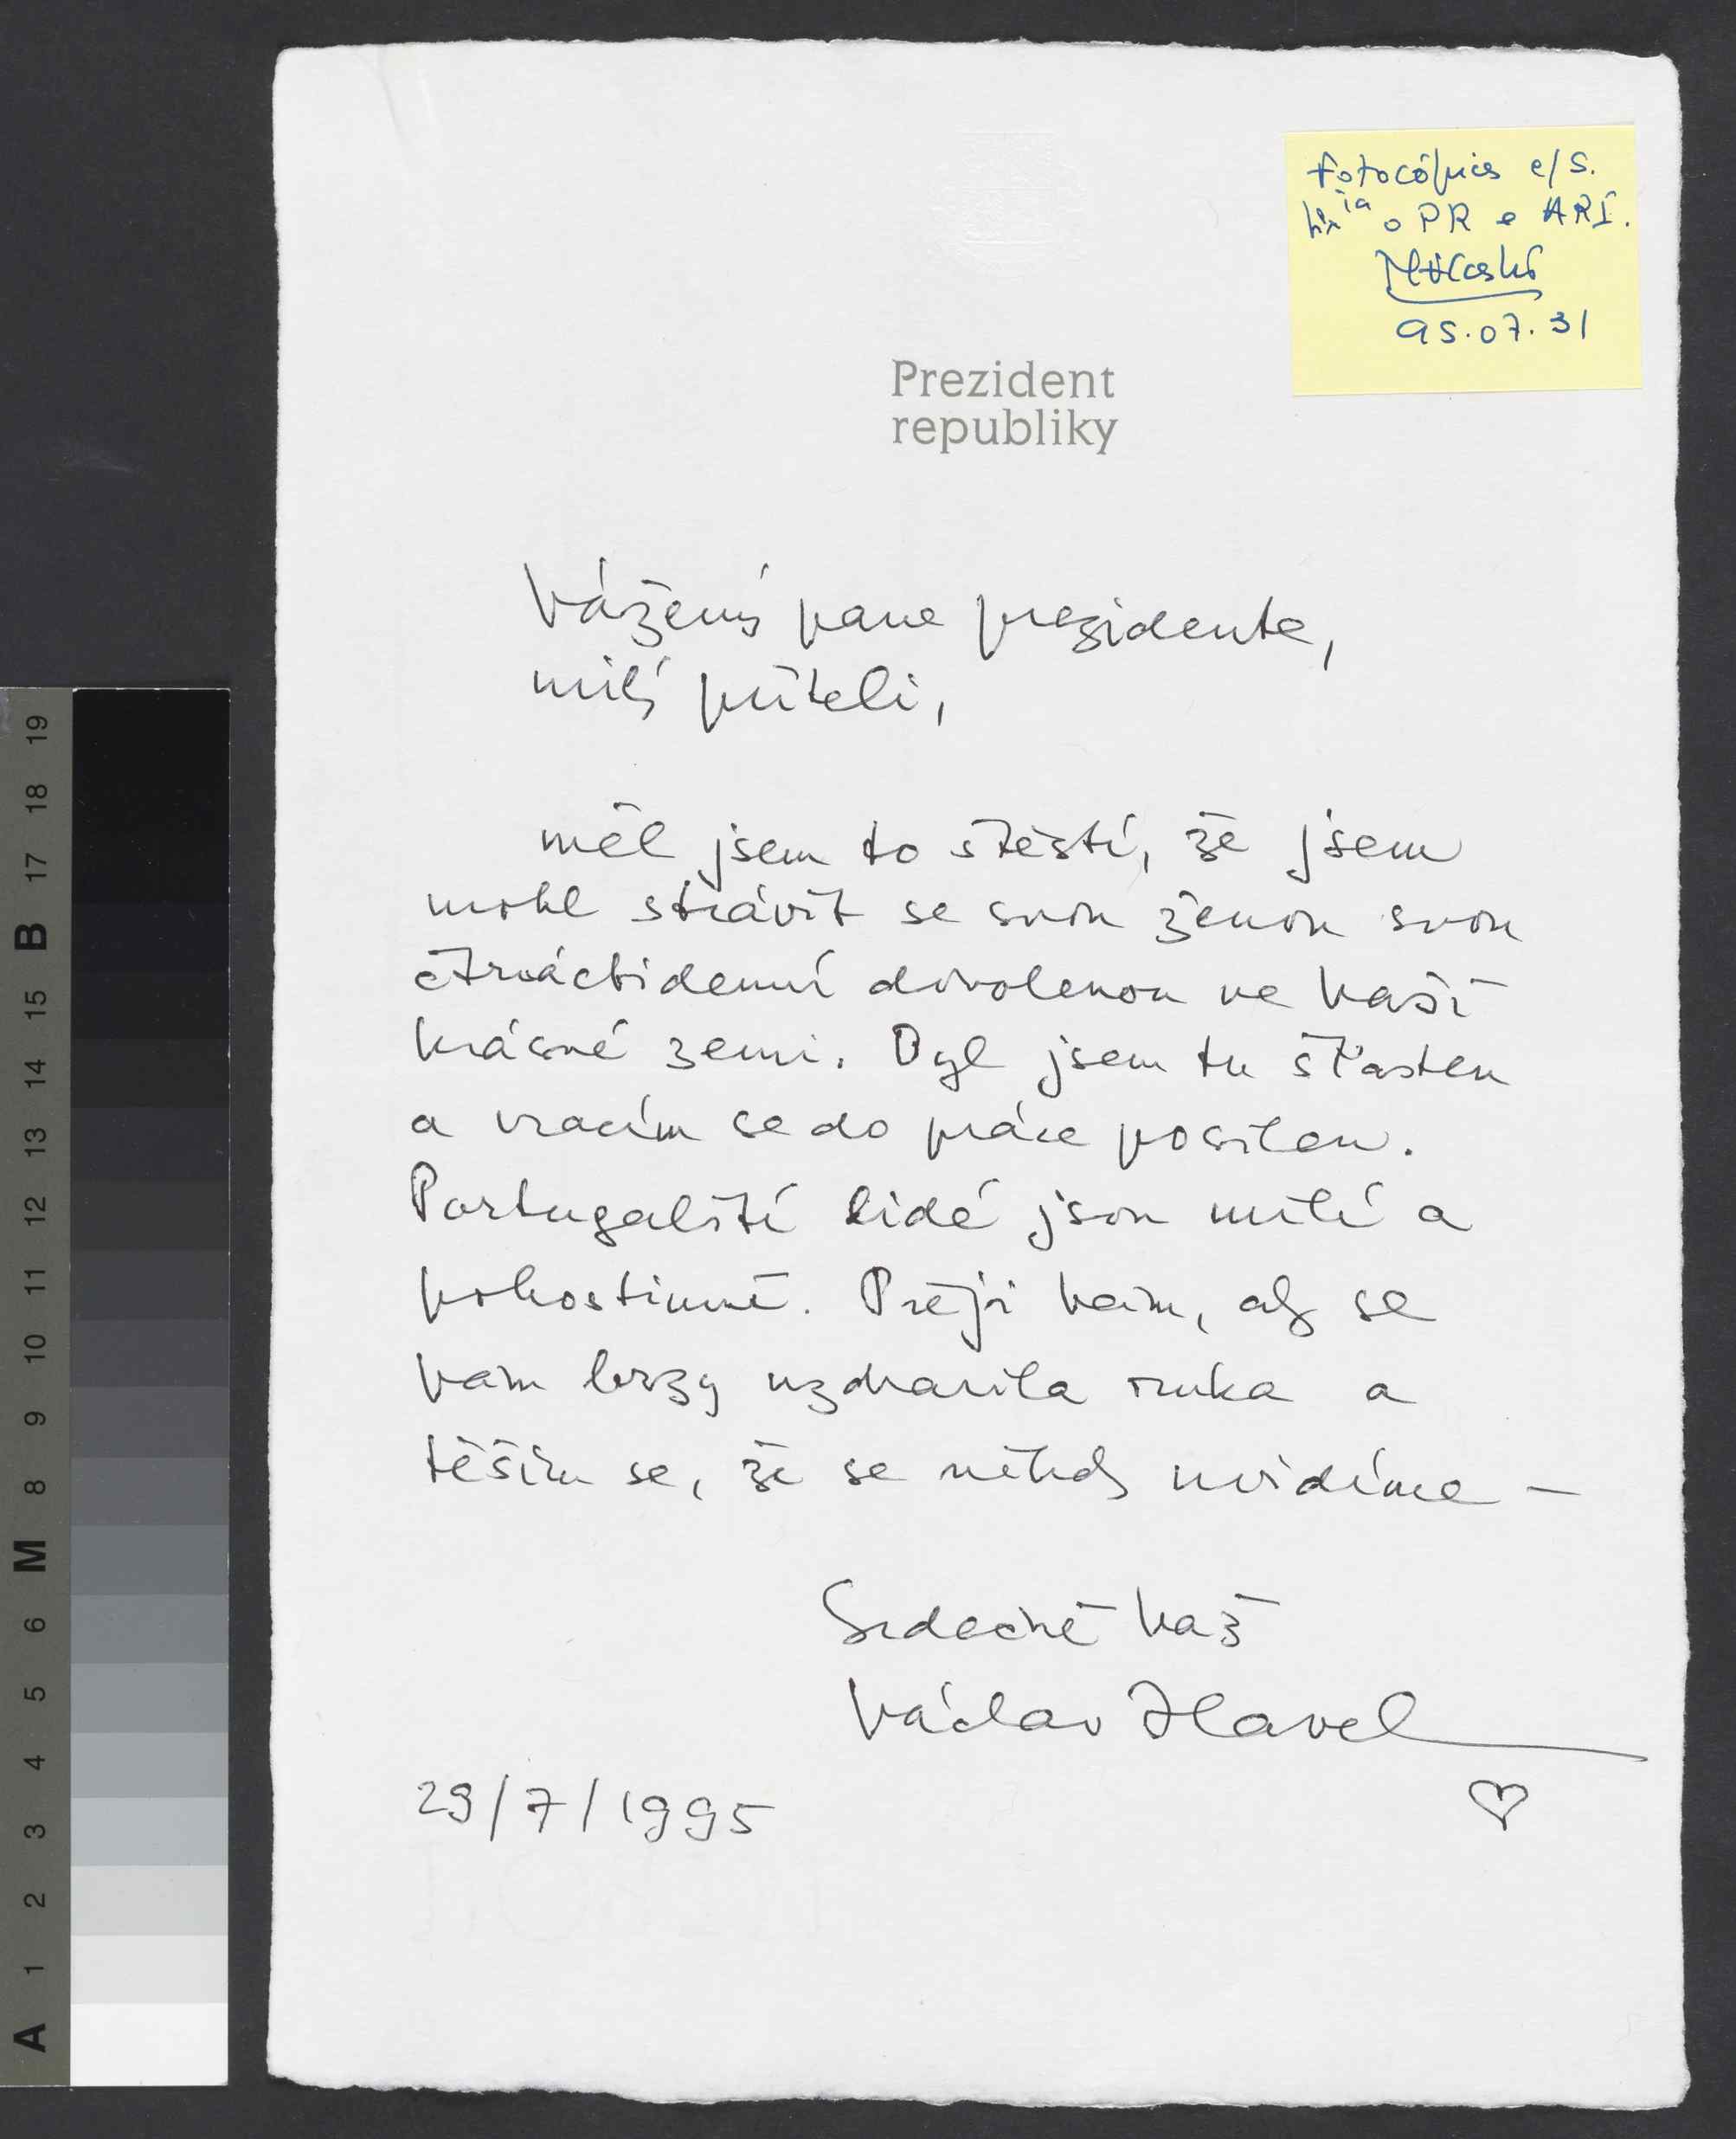 Fotocópias e/S.
o PR e ARI.
95.07.31
Prezident
republiky
Vážený pane prezidente,
milý příteli,
měl jsem to štěstí, že jsem
mohl strávit se svou ženou svou
čtrnáctidenní dovolenou ve Vaší
krásné zemi. Byl jsem tu šťasten
a vracím se do práce posilen.
Portugalští lidé jsou milí a
pohostinní. Přeji Vám, aby se
Vám brzy uzdravila ruka a
těším se, že se někdy uvidíme –
Srdečně Váš
Václav Havel
29/7/1995
A 1 2 3 4 5 6 M 8 9 10 11 12 13 14 15 B 17 18 19